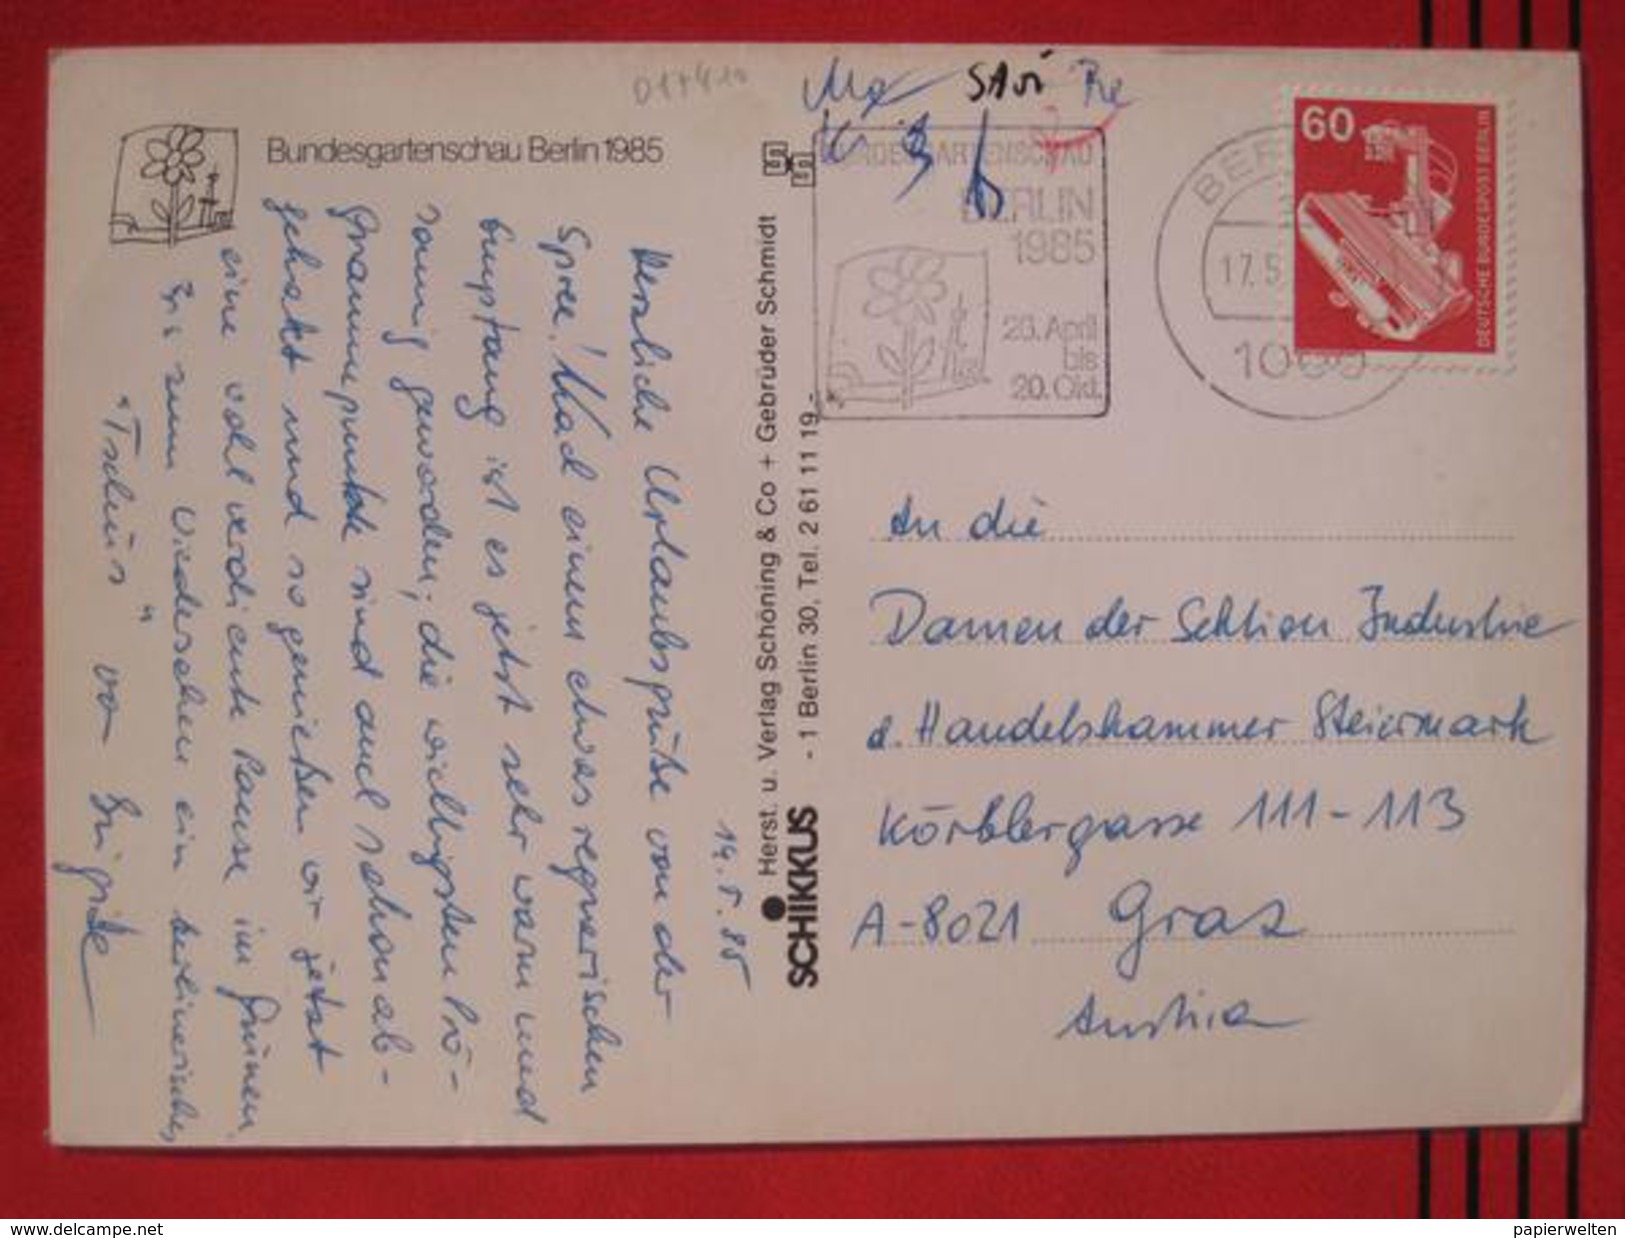 011410
Bundesgartenschau Berlin 1985
14.5.85
Herzliche Urlaubsgrüße von der
Spree! Nach einem etwas regnerischen
Empfang ist es jetzt sehr warm und
sonnig geworden; die wichtigsten Pro-
grammpunkte sind auch schon ab-
gehakt und so genießen wir jetzt
eine wohlverdiente Pause im Grünen.
Bis zum Wiedersehen ein berlinerisches
"Tschüs" von Brigitte
Herst. u. Verlag Schöning & Co + Gebrüder Schmidt
SCHIKKUS - 1 Berlin 30, Tel. 2 61 11 19 -
BUNDESGARTENSCHAU
BERLIN
1985
26. April
bis
20. Okt.
BER
17.5
1000
60
DEUTSCHE BUNDESPOST BERLIN
An die
Damen der Sektion Industrie
d. Handelskammer Steiermark
Körblergasse 111-113
A-8021 Graz
Austria
www.delcampe.net
papierwelten